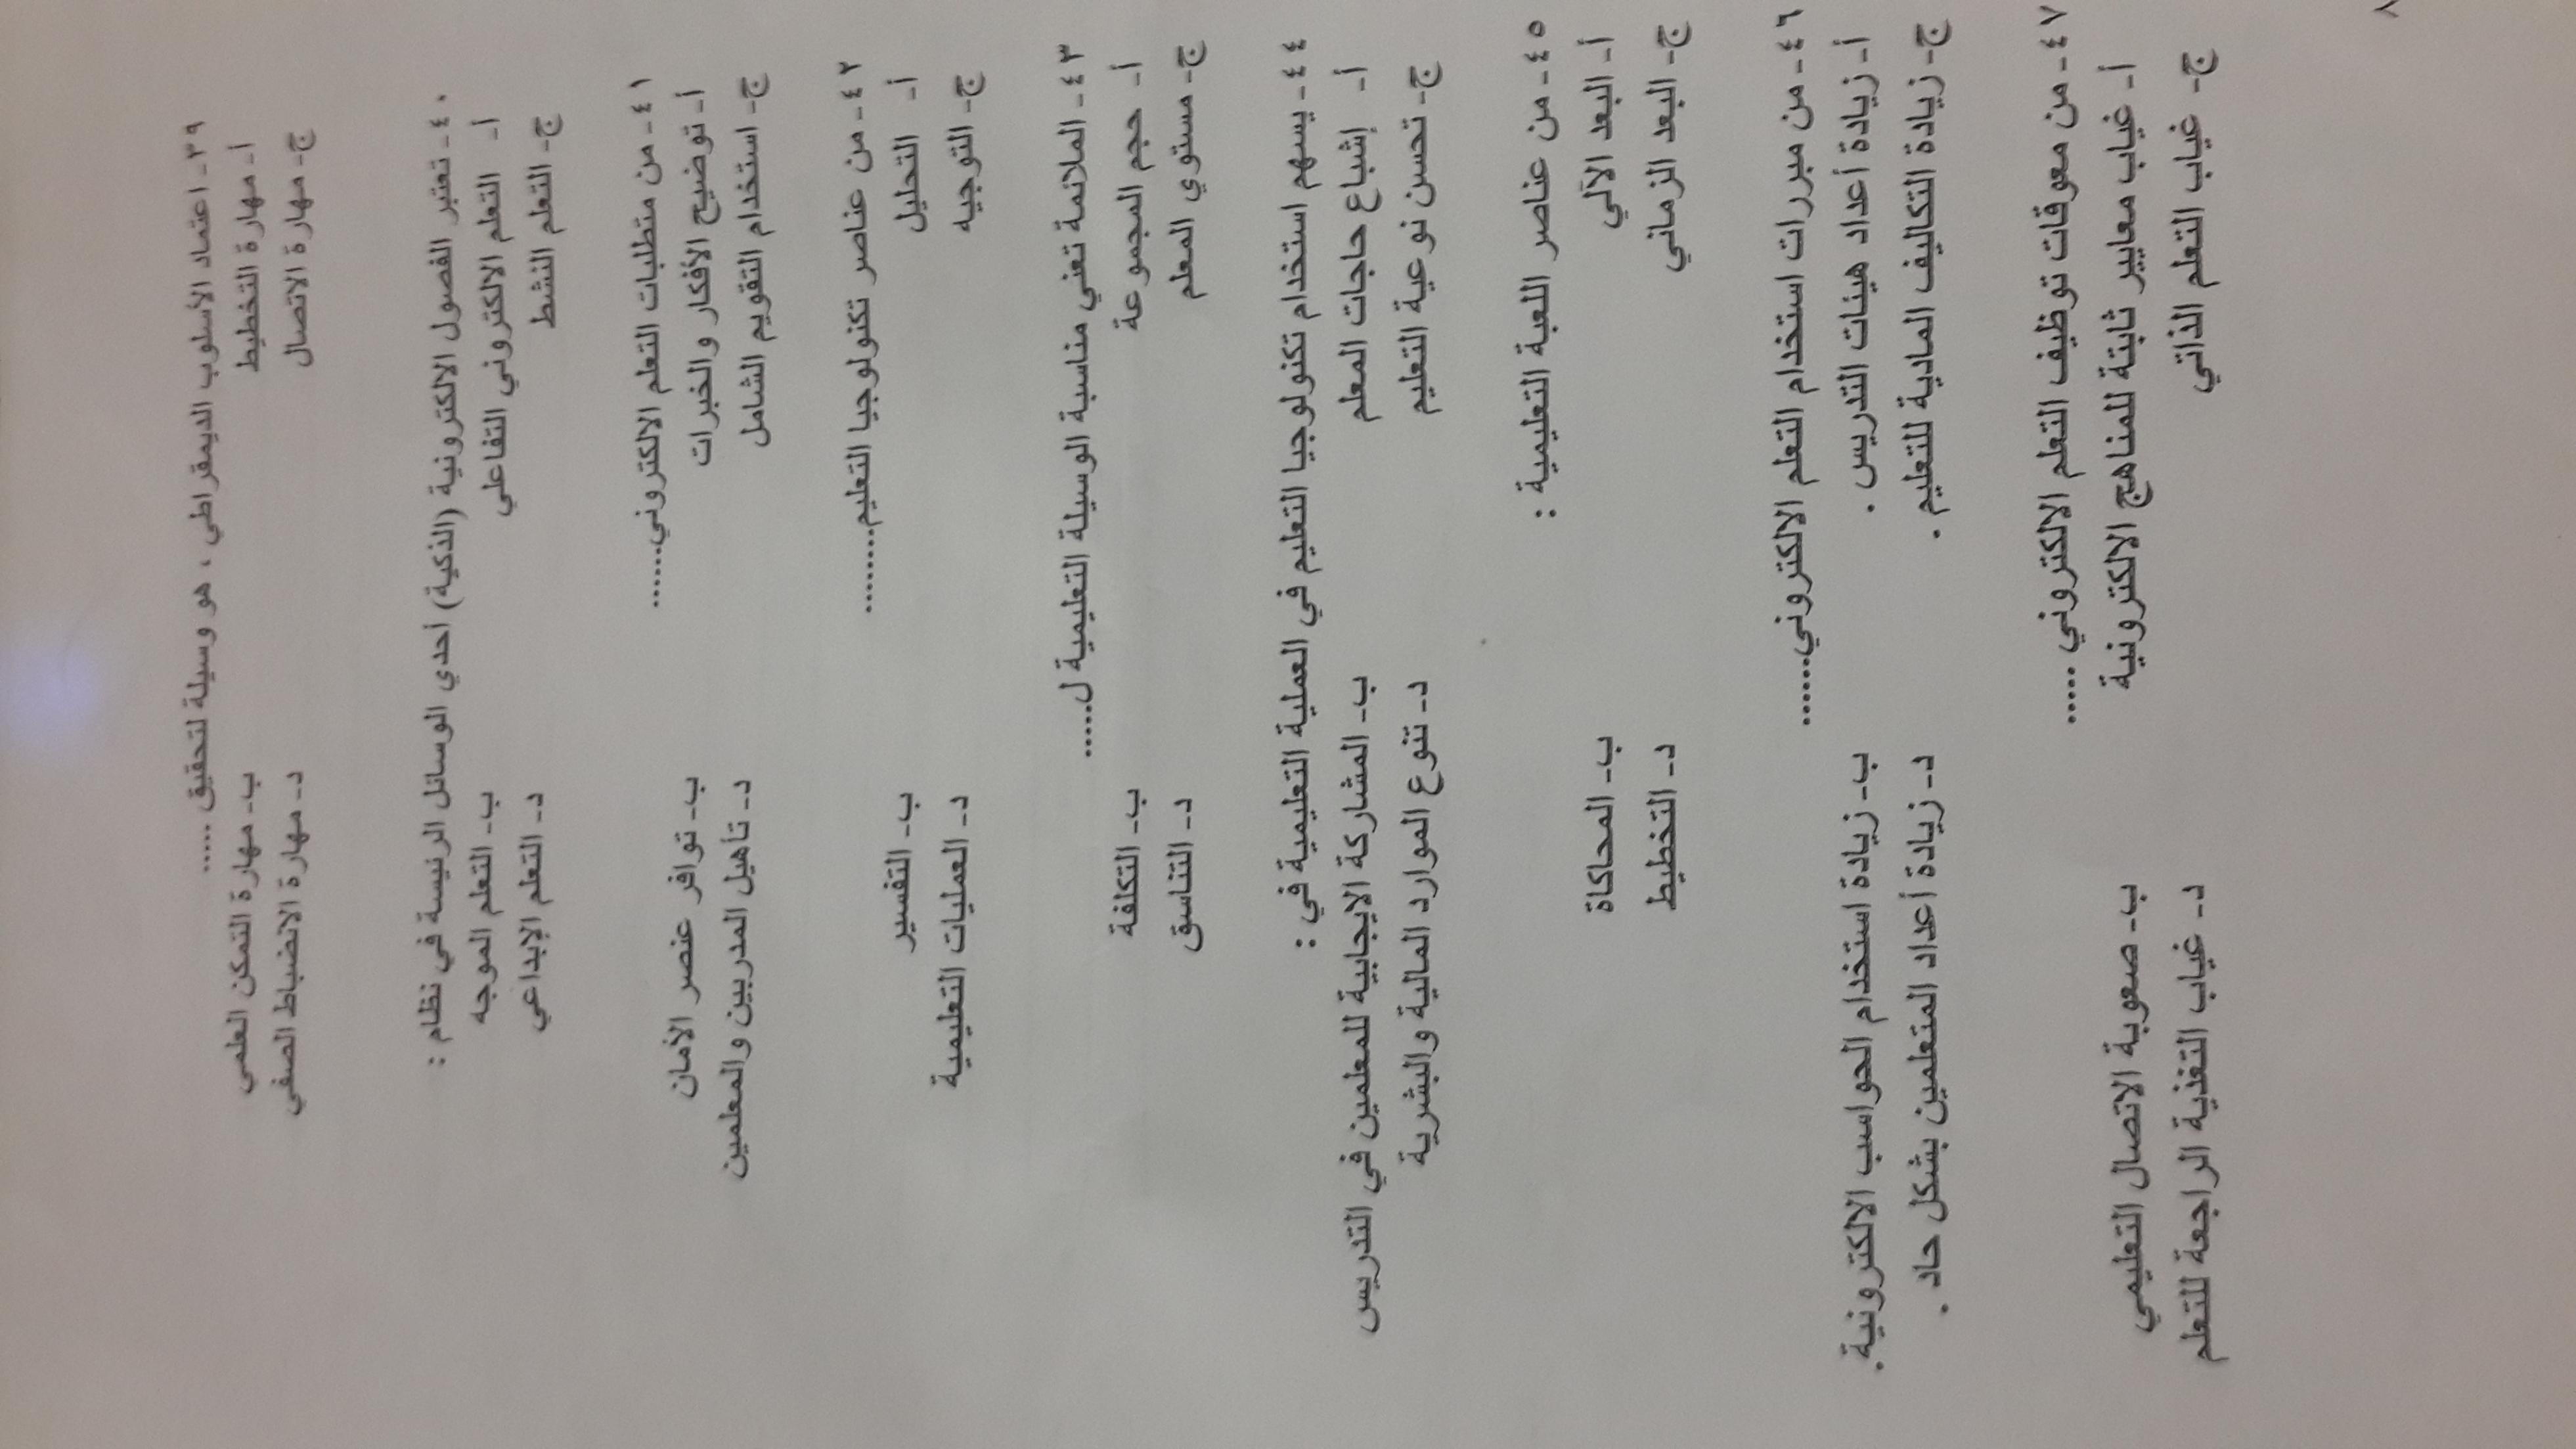 ٣٩- اعتماد الأسلوب الديمقراطي ، هو وسيلة لتحقيق .....
أ- مهارة التخطيط ب- مهارة التمكن العلمي
ج- مهارة الاتصال د- مهارة الانضباط الصفي
٤٠- تعتبر الفصول الالكترونية (الذكية) أحدي الوسائل الرئيسة في نظام :
أ- التعلم الالكتروني التفاعلي ب- التعلم الموجه
ج- التعلم النشط د- التعلم الإبداعي
٤١- من متطلبات التعلم الالكتروني......
أ- توضيح الأفكار والخبرات ب- توافر عنصر الأمان
ج- استخدام التقويم الشامل د- تأهيل المدربين والمعلمين
٤٢- من عناصر تكنولوجيا التعليم........
أ- التحليل ب- التفسير
ج- التوجيه د- العمليات التعليمية
٤٣- الملائمة تعني مناسبة الوسيلة التعليمية ل.....
أ- حجم المجموعة ب- التكلفة
ج- مستوي المعلم د- التناسق
٤٤- يسهم استخدام تكنولوجيا التعليم في العملية التعليمية في :
أ- إشباع حاجات المعلم ب- المشاركة الايجابية للمعلمين في التدريس
ج- تحسن نوعية التعليم د- تنوع الموارد المالية والبشرية
٤٥- من عناصر اللعبة التعليمية :
أ- البعد الآلي ب- المحاكاة
ج- البعد الزماني د- التخطيط
٤٦- من مبررات استخدام التعلم الالكتروني......
أ- زيادة أعداد هيئات التدريس . ب- زيادة استخدام الحواسب الالكترونية.
ج- زيادة التكاليف المادية للتعليم . د- زيادة أعداد المتعلمين بشكل حاد .
٤٧- من معوقات توظيف التعلم الالكتروني .....
أ- غياب معايير ثابتة للمناهج الالكترونية ب- صعوبة الاتصال التعليمي
ج- غياب التعلم الذاتي د- غياب التغذية الراجعة للتعلم
٨